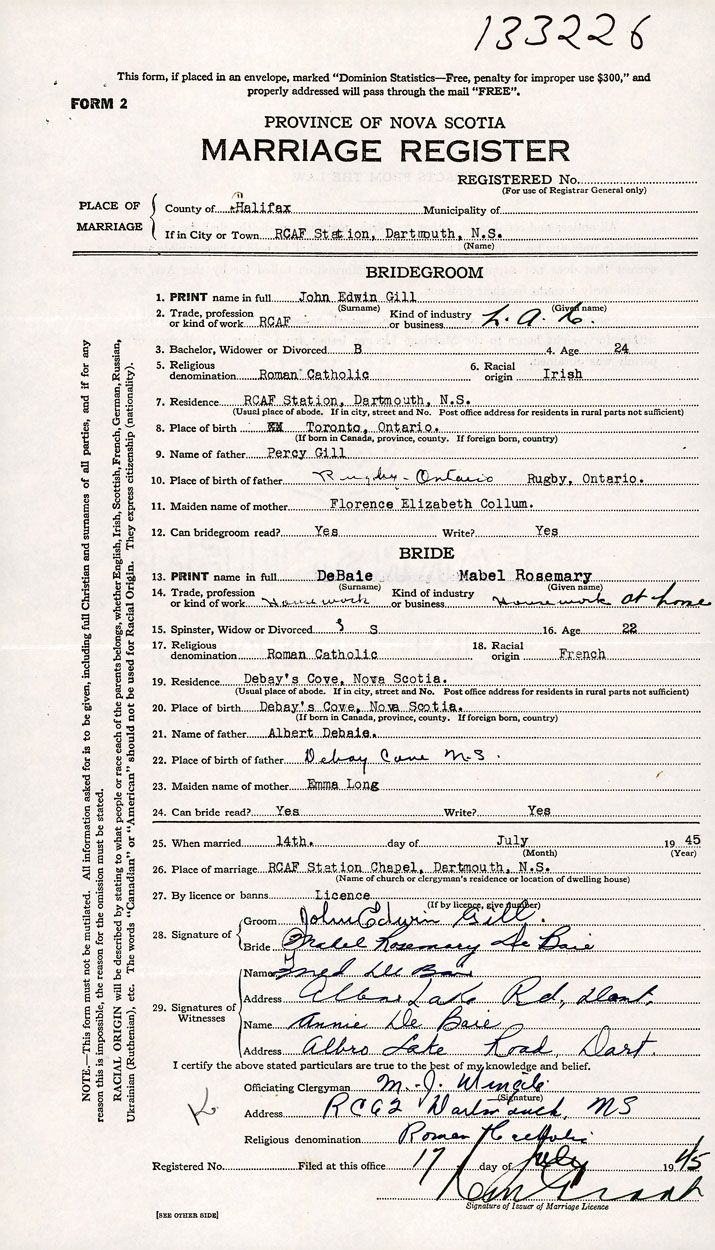 133226
This form, if placed in an envelope, marked “Dominion Statistics—Free, penalty for improper use $300,” and
properly addressed will pass through the mail “FREE”.
FORM 2
PROVINCE OF NOVA SCOTIA
MARRIAGE REGISTER
REGISTERED No.
(For use of Registrar General only)
PLACE OF MARRIAGE
County of Halifax Municipality of
If in City or Town RCAF Station, Dartmouth, N.S.
(Name)
BRIDEGROOM
1. PRINT name in full John Edwin Gill
(Surname) (Given name)
2. Trade, profession or kind of work RCAF Kind of industry or business L.A.C.
3. Bachelor, Widower or Divorced B 4. Age 24
5. Religious denomination Roman Catholic 6. Racial origin Irish
7. Residence RCAF Station, Dartmouth, N.S.
(Usual place of abode. If in city, street and No. Post office address for residents in rural parts not sufficient)
8. Place of birth Toronto, Ontario.
(If born in Canada, province, county. If foreign born, country)
9. Name of father Percy Gill
10. Place of birth of father Rugby - Ontario Rugby, Ontario.
11. Maiden name of mother Florence Elizabeth Collum.
12. Can bridegroom read? Yes Write? Yes
BRIDE
13. PRINT name in full DeBaie Mabel Rosemary
(Surname) (Given name)
14. Trade, profession or kind of work Housework Kind of industry or business Housework at home
15. Spinster, Widow or Divorced S 16. Age 22
17. Religious denomination Roman Catholic 18. Racial origin French
19. Residence Debay's Cove, Nova Scotia.
(Usual place of abode. If in city, street and No. Post office address for residents in rural parts not sufficient)
20. Place of birth Debay's Cove, Nova Scotia.
(If born in Canada, province, county. If foreign born, country)
21. Name of father Albert Debaie.
22. Place of birth of father Debay Cove N.S.
23. Maiden name of mother Emma Long
24. Can bride read? Yes Write? Yes
25. When married 14th. day of July 1945
(Month) (Year)
26. Place of marriage RCAF Station Chapel, Dartmouth, N.S.
(Name of church or clergyman's residence or location of dwelling house)
27. By licence or banns Licence
(If by licence, give number)
28. Signature of
Groom John Edwin Gill.
Bride Mabel Rosemary De Baie
29. Signatures of Witnesses
Name Fred De Baie
Address Albro Lake Rd, Dart.
Name Annie De Baie
Address Albro Lake Road, Dart.
I certify the above stated particulars are true to the best of my knowledge and belief.
Officiating Clergyman M. J.
(Signature)
Address Dartmouth, NS
Religious denomination Roman Catholic
Registered No. Filed at this office 17 day of July 1945
Signature of Issuer of Marriage Licence
[SEE OTHER SIDE]
NOTE.—This form must not be mutilated. All information asked for is to be given, including full Christian and surnames of all parties, and if for any
reason this is impossible, the reason for the omission must be stated.
RACIAL ORIGIN will be described by stating to what people or race each of the parents belongs, whether English, Irish, Scottish, French, German, Russian,
Ukrainian (Ruthenian), etc. The words “Canadian” or “American” should not be used for Racial Origin. They express citizenship (nationality).